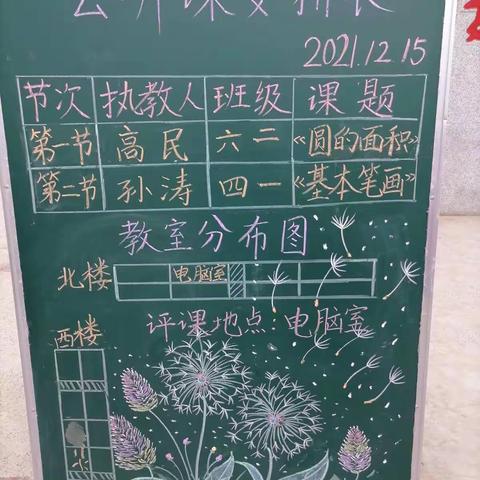 公开课安排表
2021.12.15
节次 执教人 班级 课题
第一节 高民 六二 《圆的面积》
第二节 孙涛 四一 《基本笔画》
教室分布图
北楼 电脑室
评课地点:电脑室
西楼